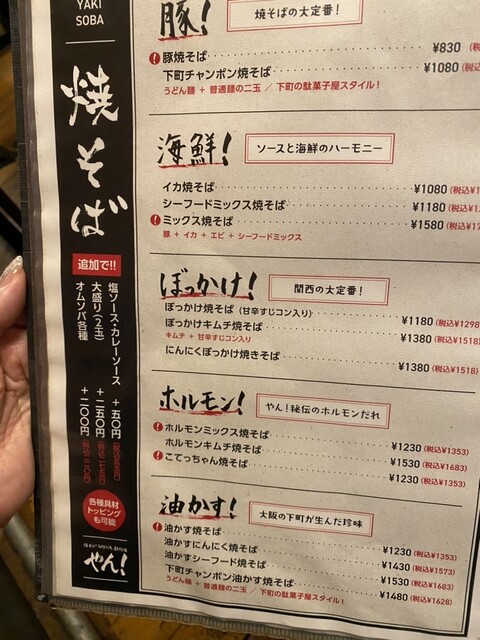 YAKI
SOBA
焼そば
追加で!!
塩ソース・カレーソース +五〇円
大盛り(2玉) +二五〇円
オムソバ各種 +二〇〇円
各種具材
トッピング
も可能
やん!
豚!
焼そばの大定番!
豚焼そば ¥830
下町チャンポン焼そば ¥1080
うどん麺 + 普通麺の二玉 / 下町の駄菓子屋スタイル!
海鮮!
ソースと海鮮のハーモニー
イカ焼そば ¥1080 (税込¥1
シーフードミックス焼そば ¥1180 (税込¥12
ミックス焼そば ¥1580 (税込¥17
豚 + イカ + エビ + シーフードミックス
ぼっかけ!
関西の大定番!
ぼっかけ焼そば (甘辛すじコン入り) ¥1180 (税込¥1298)
ぼっかけキムチ焼そば ¥1380 (税込¥1518)
キムチ + 甘辛すじコン入り
にんにくぼっかけ焼きそば ¥1380 (税込¥1518)
ホルモン!
やん!秘伝のホルモンだれ
ホルモンミックス焼そば ¥1230 (税込¥1353)
ホルモンキムチ焼そば ¥1530 (税込¥1683)
こてっちゃん焼そば ¥1230 (税込¥1353)
油かす!
大阪の下町が生んだ珍味
油かす焼そば ¥1230 (税込¥1353)
油かすにんにく焼そば ¥1430 (税込¥1573)
油かすシーフード焼そば ¥1530 (税込¥1683)
下町チャンポン油かす焼そば ¥1480 (税込¥1628)
うどん麺 + 普通麺の二玉 / 下町の駄菓子屋スタイル!